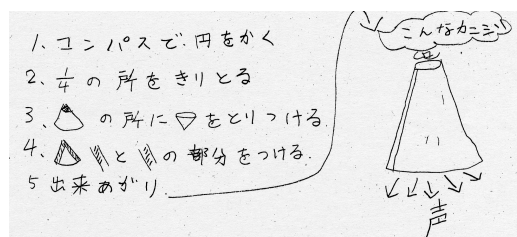 1. コンパスで.円をかく
2. 1/4 の所をきりとる
3. の所に をとりつける.
4. と の部分をつける.
5 出来あがり
こんなカンジ!
声